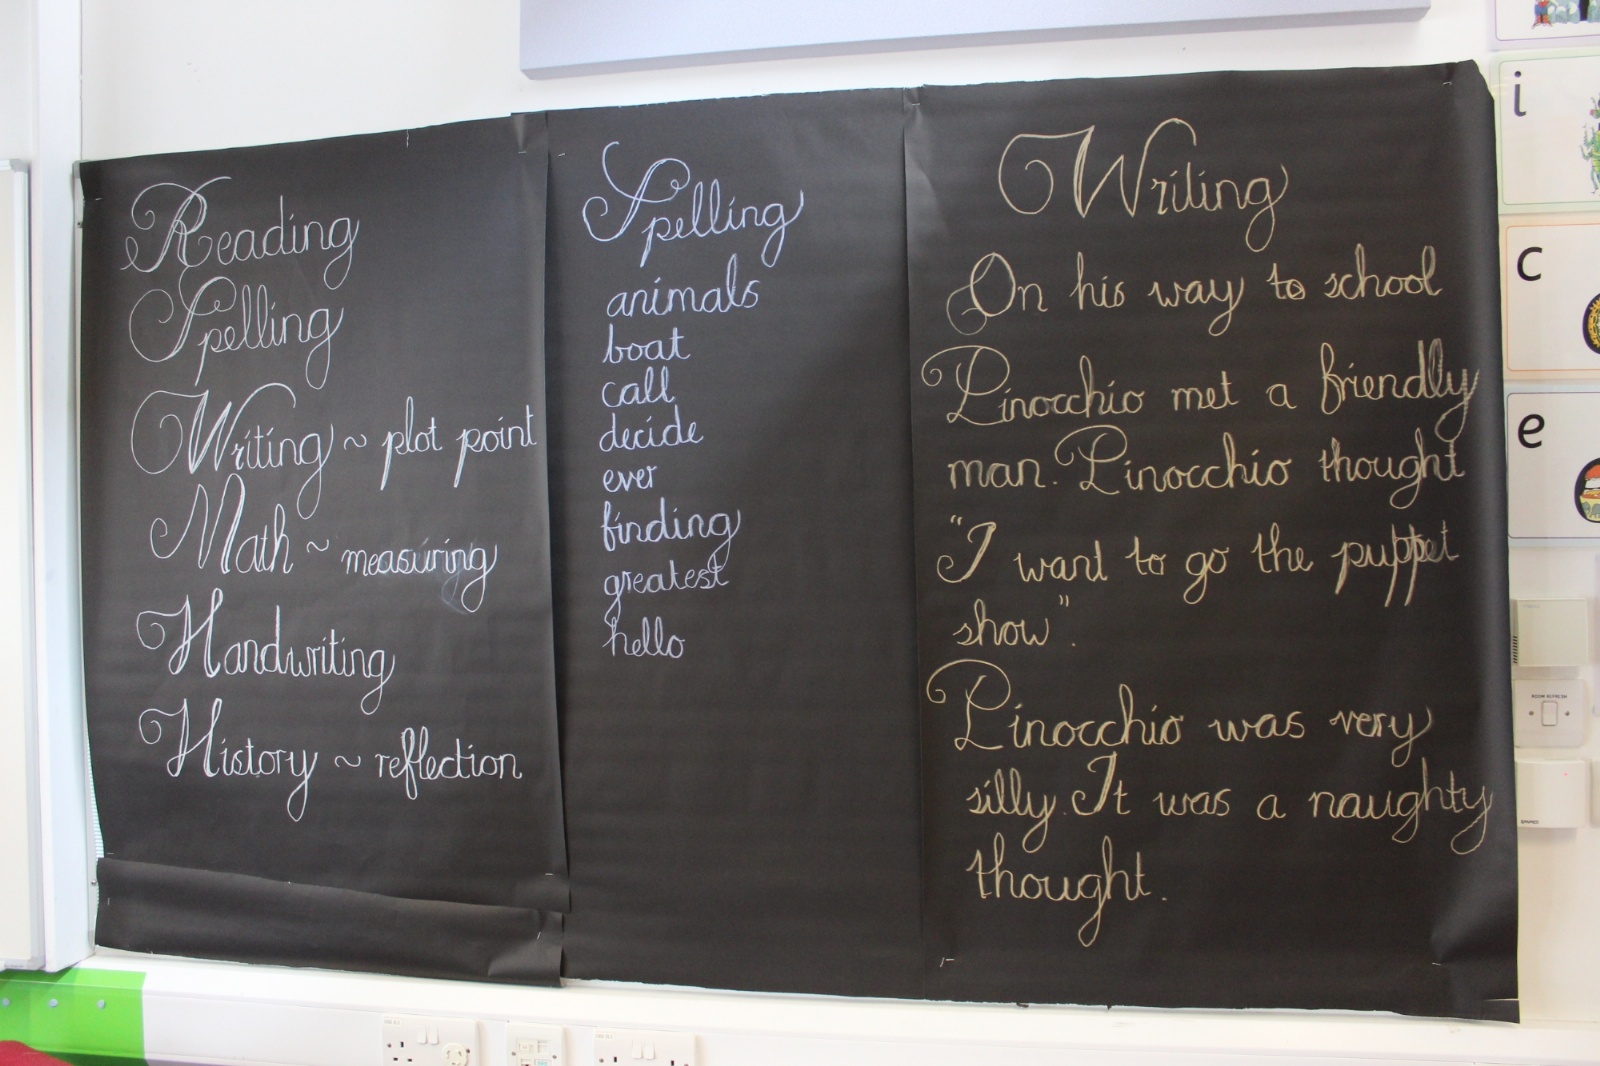 Reading
Spelling
Writing ~ plot point
Math ~ measuring
Handwriting
History ~ reflection
Spelling
animals
boat
call
decide
ever
finding
greatest
hello
Writing
On his way to school
Pinocchio met a friendly
man. Pinocchio thought
"I want to go the puppet
show".
Pinocchio was very
silly. It was a naughty
thought.
i
c
e
ROOM REFRESH